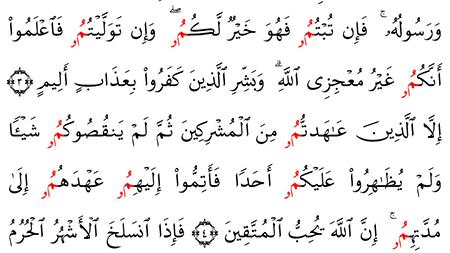 وَرَسُولُهُۥۚ فَإِن تُبْتُمُۥ فَهُوَ خَيْرٌ لَّكُمُۥۖ وَإِن تَوَلَّيْتُمُۥ فَٱعْلَمُوٓا۟
أَنَّكُمُۥ غَيْرُ مُعْجِزِى ٱللَّهِۗ وَبَشِّرِ ٱلَّذِينَ كَفَرُوا۟ بِعَذَابٍ أَلِيمٍ ﴿٣﴾
إِلَّا ٱلَّذِينَ عَٰهَدتُّمُۥ مِنَ ٱلْمُشْرِكِينَ ثُمَّ لَمْ يَنقُصُوكُمُۥ شَيْـًٔا
وَلَمْ يُظَٰهِرُوا۟ عَلَيْكُمُۥ أَحَدًا فَأَتِمُّوٓا۟ إِلَيْهِمُۥ عَهْدَهُمُۥ إِلَىٰ
مُدَّتِهِمُۥۚ إِنَّ ٱللَّهَ يُحِبُّ ٱلْمُتَّقِينَ ﴿٤﴾ فَإِذَا ٱنسَلَخَ ٱلْأَشْهُرُ ٱلْحُرُمُ